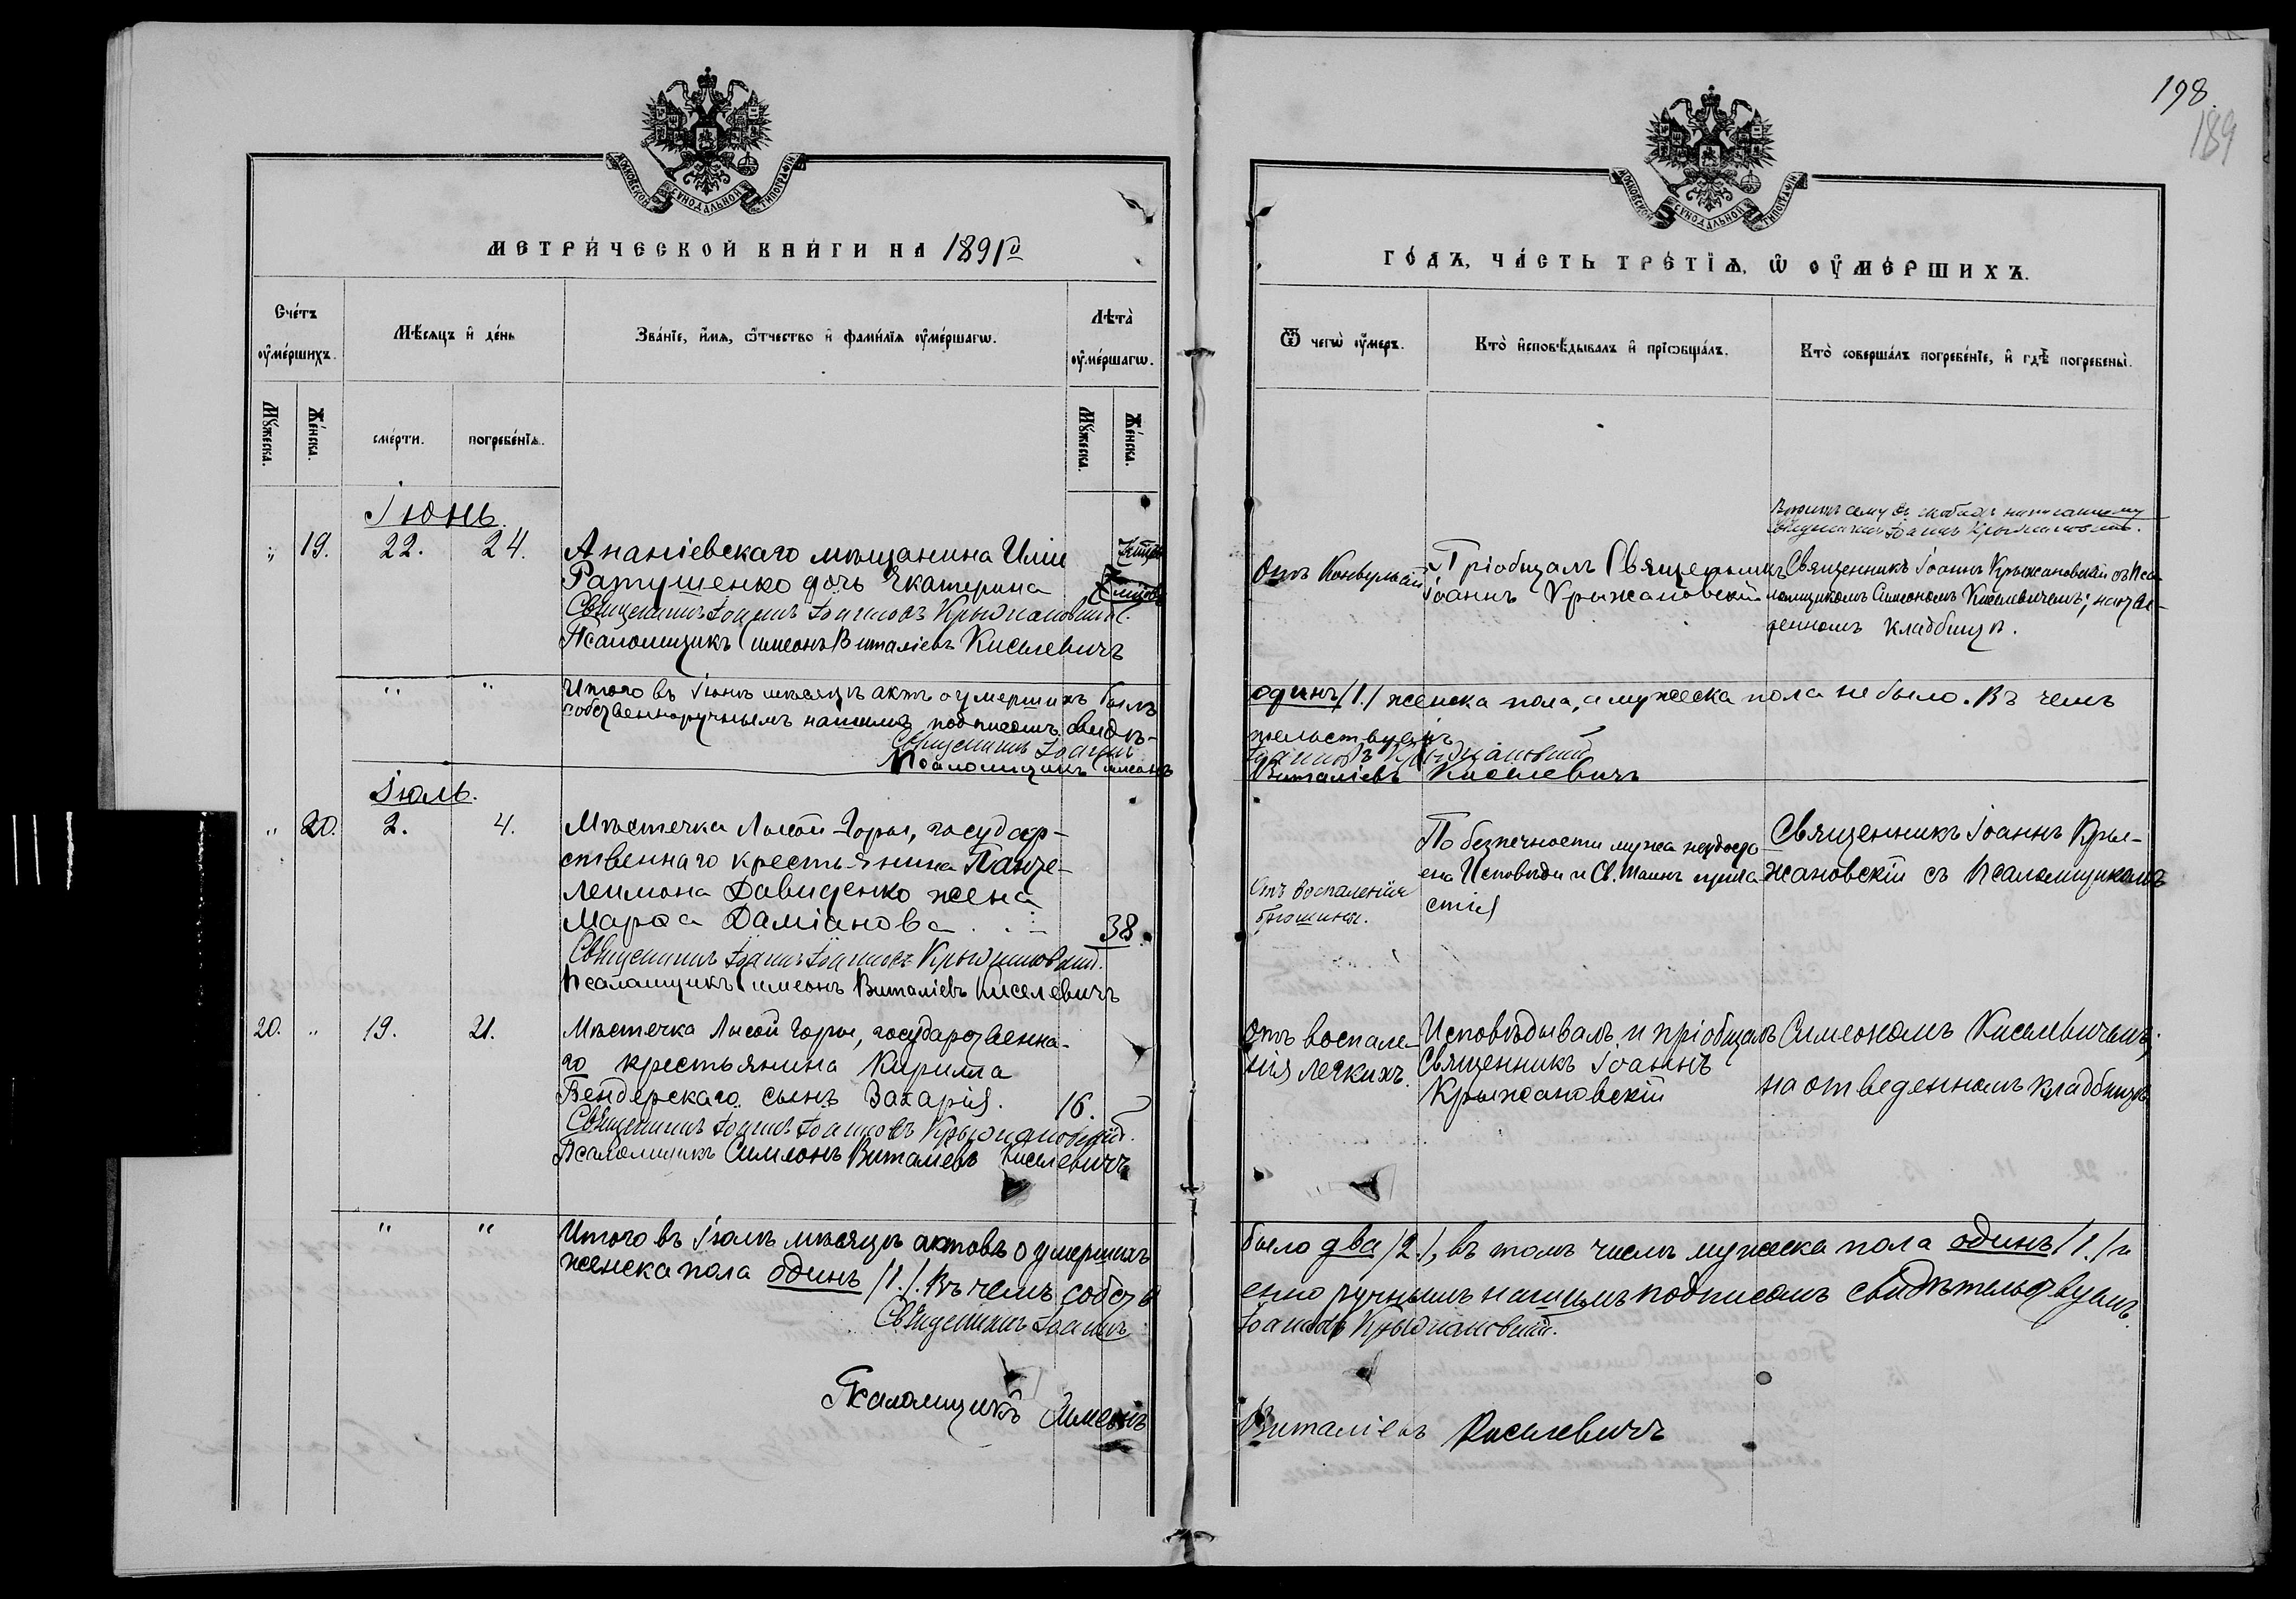 198.
189
МОСКОВСКОЙ СѴНОДАЛЬНОЙ ТИПОГРАФІИ
МЕТРИ́ЧЕСКОЙ КНИ́ГИ НА 1891 го
Сче́тъ ᲂу҆ме́ршихъ.
Мѣ́сяцъ и҆ де́нь
Зва́нїе, и҆́мѧ, ѻ҆́тчество и҆ фами́лїѧ ᲂу҆ме́ршагѡ.
Лѣта̀ ᲂу҆ме́ршагѡ.
Мꙋ́жеска.
Же́нска.
сме́рти.
погребе́нїѧ.
Мꙋ́жеска.
Же́нска.
Іюнь.
" 19. 22. 24. Ананіевскаго мѣщанина Иліи
Ратушенко дочь Екатерина
Священникъ Іоаннъ Іоанновъ Крыжановскій.
Псаломщикъ Симеонъ Виталіевъ Киселевичъ
" " Итого въ Іюнѣ мѣсяцѣ актъ о умершихъ былъ
собственноручнымъ нашимъ подписомъ свидѣ-
Священникъ Іоаннъ
Псаломщикъ Симеонъ
Іюль.
" 20. 2. 4. Мѣстечка Лысой-Горы, государ-
ственнаго крестьянина Панте-
леимона Давиденко жена
Марѳа Даміанова 38.
Священникъ Іоаннъ Іоанновъ Крыжановскій.
Псаломщикъ Симеонъ Виталіевъ Киселевичъ
20. " 19. 21. Мѣстечка Лысой Горы, государственна-
го крестьянина Кирилла
Бендерскаго сынъ Захарія. 16.
Священникъ Іоаннъ Іоанновъ Крыжановскій.
Псаломщикъ Симеонъ Виталіевъ Киселевичъ
" " Итого въ Іюлѣ мѣсяцѣ актовъ о умершихъ
женска пола одинъ /1./. Въ чемъ собств
Священникъ Іоаннъ
Псаломщикъ Симеонъ
МОСКОВСКОЙ СѴНОДАЛЬНОЙ ТИПОГРАФІИ
ГО́ДЪ, ЧА́СТЬ ТРЕ́ТЇѦ, Ѡ҆ ОУ҆МЕ́РШИХЪ.
Ѿ чегѡ̀ ᲂу҆́меръ.
Кто̀ и҆сповѣ́дывалъ и҆ прїѡбща́лъ.
Кто̀ соверша́лъ погребе́нїе, и҆ гдѣ̀ погребены̀.
Священникъ Іоаннъ Крыжановскій.
Отъ Конвульсій
Пріобщалъ Священникъ
Іоаннъ Крыжановскій
Священникъ Іоаннъ Крыжановскій съ Пса-
ломщикомъ Симеономъ Киселевичемъ; на отве-
денномъ кладбищѣ.
одинъ /1./ женска пола, а мужеска пола не было. Въ чемъ
тельствуемъ
Іоанновъ Крыжановскій
Виталіевъ Киселевичъ
Отъ воспаленія
брюшины.
По безпечности мужа неудосто
ена Исповѣди и Св. Таинъ прича
стія
Священникъ Іоаннъ Кры-
жановскій съ Псаломщикомъ
Отъ воспале-
нія легкихъ.
Исповѣдывалъ и пріобщалъ
Священникъ Іоаннъ
Крыжановскій
Симеономъ Киселевичемъ;
на отведенномъ кладбищѣ
было два /2./, въ томъ числѣ мужеска пола одинъ /1./ и
енноручнымъ нашимъ подписомъ свидѣтельствуемъ.
Іоанновъ Крыжановскій.
Виталіевъ Киселевичъ